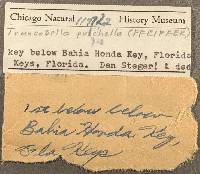 Chicago Natural History Museum
Truncatella pulchella (PFEIFFER)
key below Bahia Honda Key, Florida
Keys, Florida. Dan Steger! & ded
1st below below
Bahia Honda Key,
Fla Keys